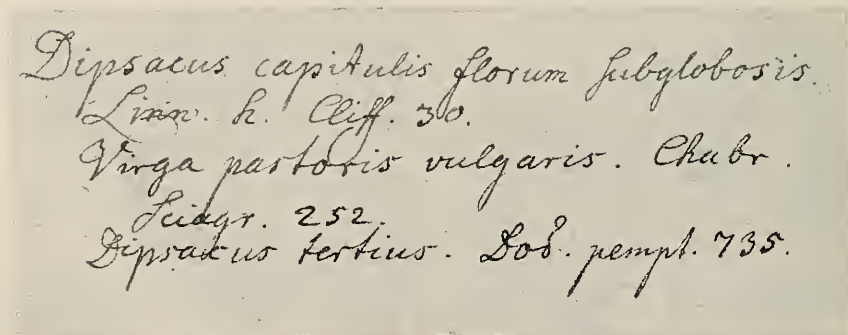 Dipsacus capitulis florum subglobosis.
Linn. h. Cliff. 30.
Virga pastoris vulgaris. Chabr.
Sciagr. 252.
Dipsacus tertius. Dod. pempt. 735.